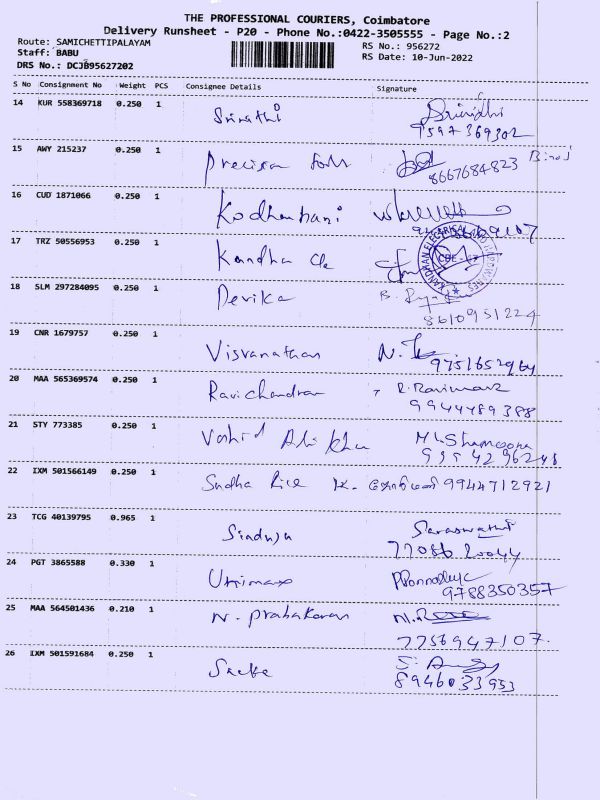 THE PROFESSIONAL COURIERS, Coimbatore
Delivery Runsheet - P20 - Phone No.:0422-3505555 - Page No.:2
Route: SAMICHETTIPALAYAM RS No.: 956272
Staff: BABU RS Date: 10-Jun-2022
DRS No.: DCJB95627202
S No Consignment No Weight PCS Consignee Details Signature
14 KUR 558369718 0.250 1 Srinathi Srinidhi
9597369302
15 AWY 215237 0.250 1 Precision Binoj
8667684823
16 CUD 1871066 0.250 1 Kodhanbani
17 TRZ 50556953 0.250 1 Kandha
18 SLM 297284095 0.250 1 Devika B.
8610951224
19 CNR 1679757 0.250 1 Visvanathan N.
9751652964
20 MAA 565369574 0.250 1 Ravichandran R.
9944489388
21 STY 773385 0.250 1 Vashid Ali Khan
9994296248
22 IXM 501566149 0.250 1 Sudha Rice K. 9944712921
23 TCG 40139795 0.965 1 Sinduja Saraswathi
77086 20044
24 PGT 3865588 0.330 1
9788350357
25 MAA 564501436 0.210 1 N. Prabakaran
7756947107.
26 IXM 501591684 0.250 1 S.
8946033953